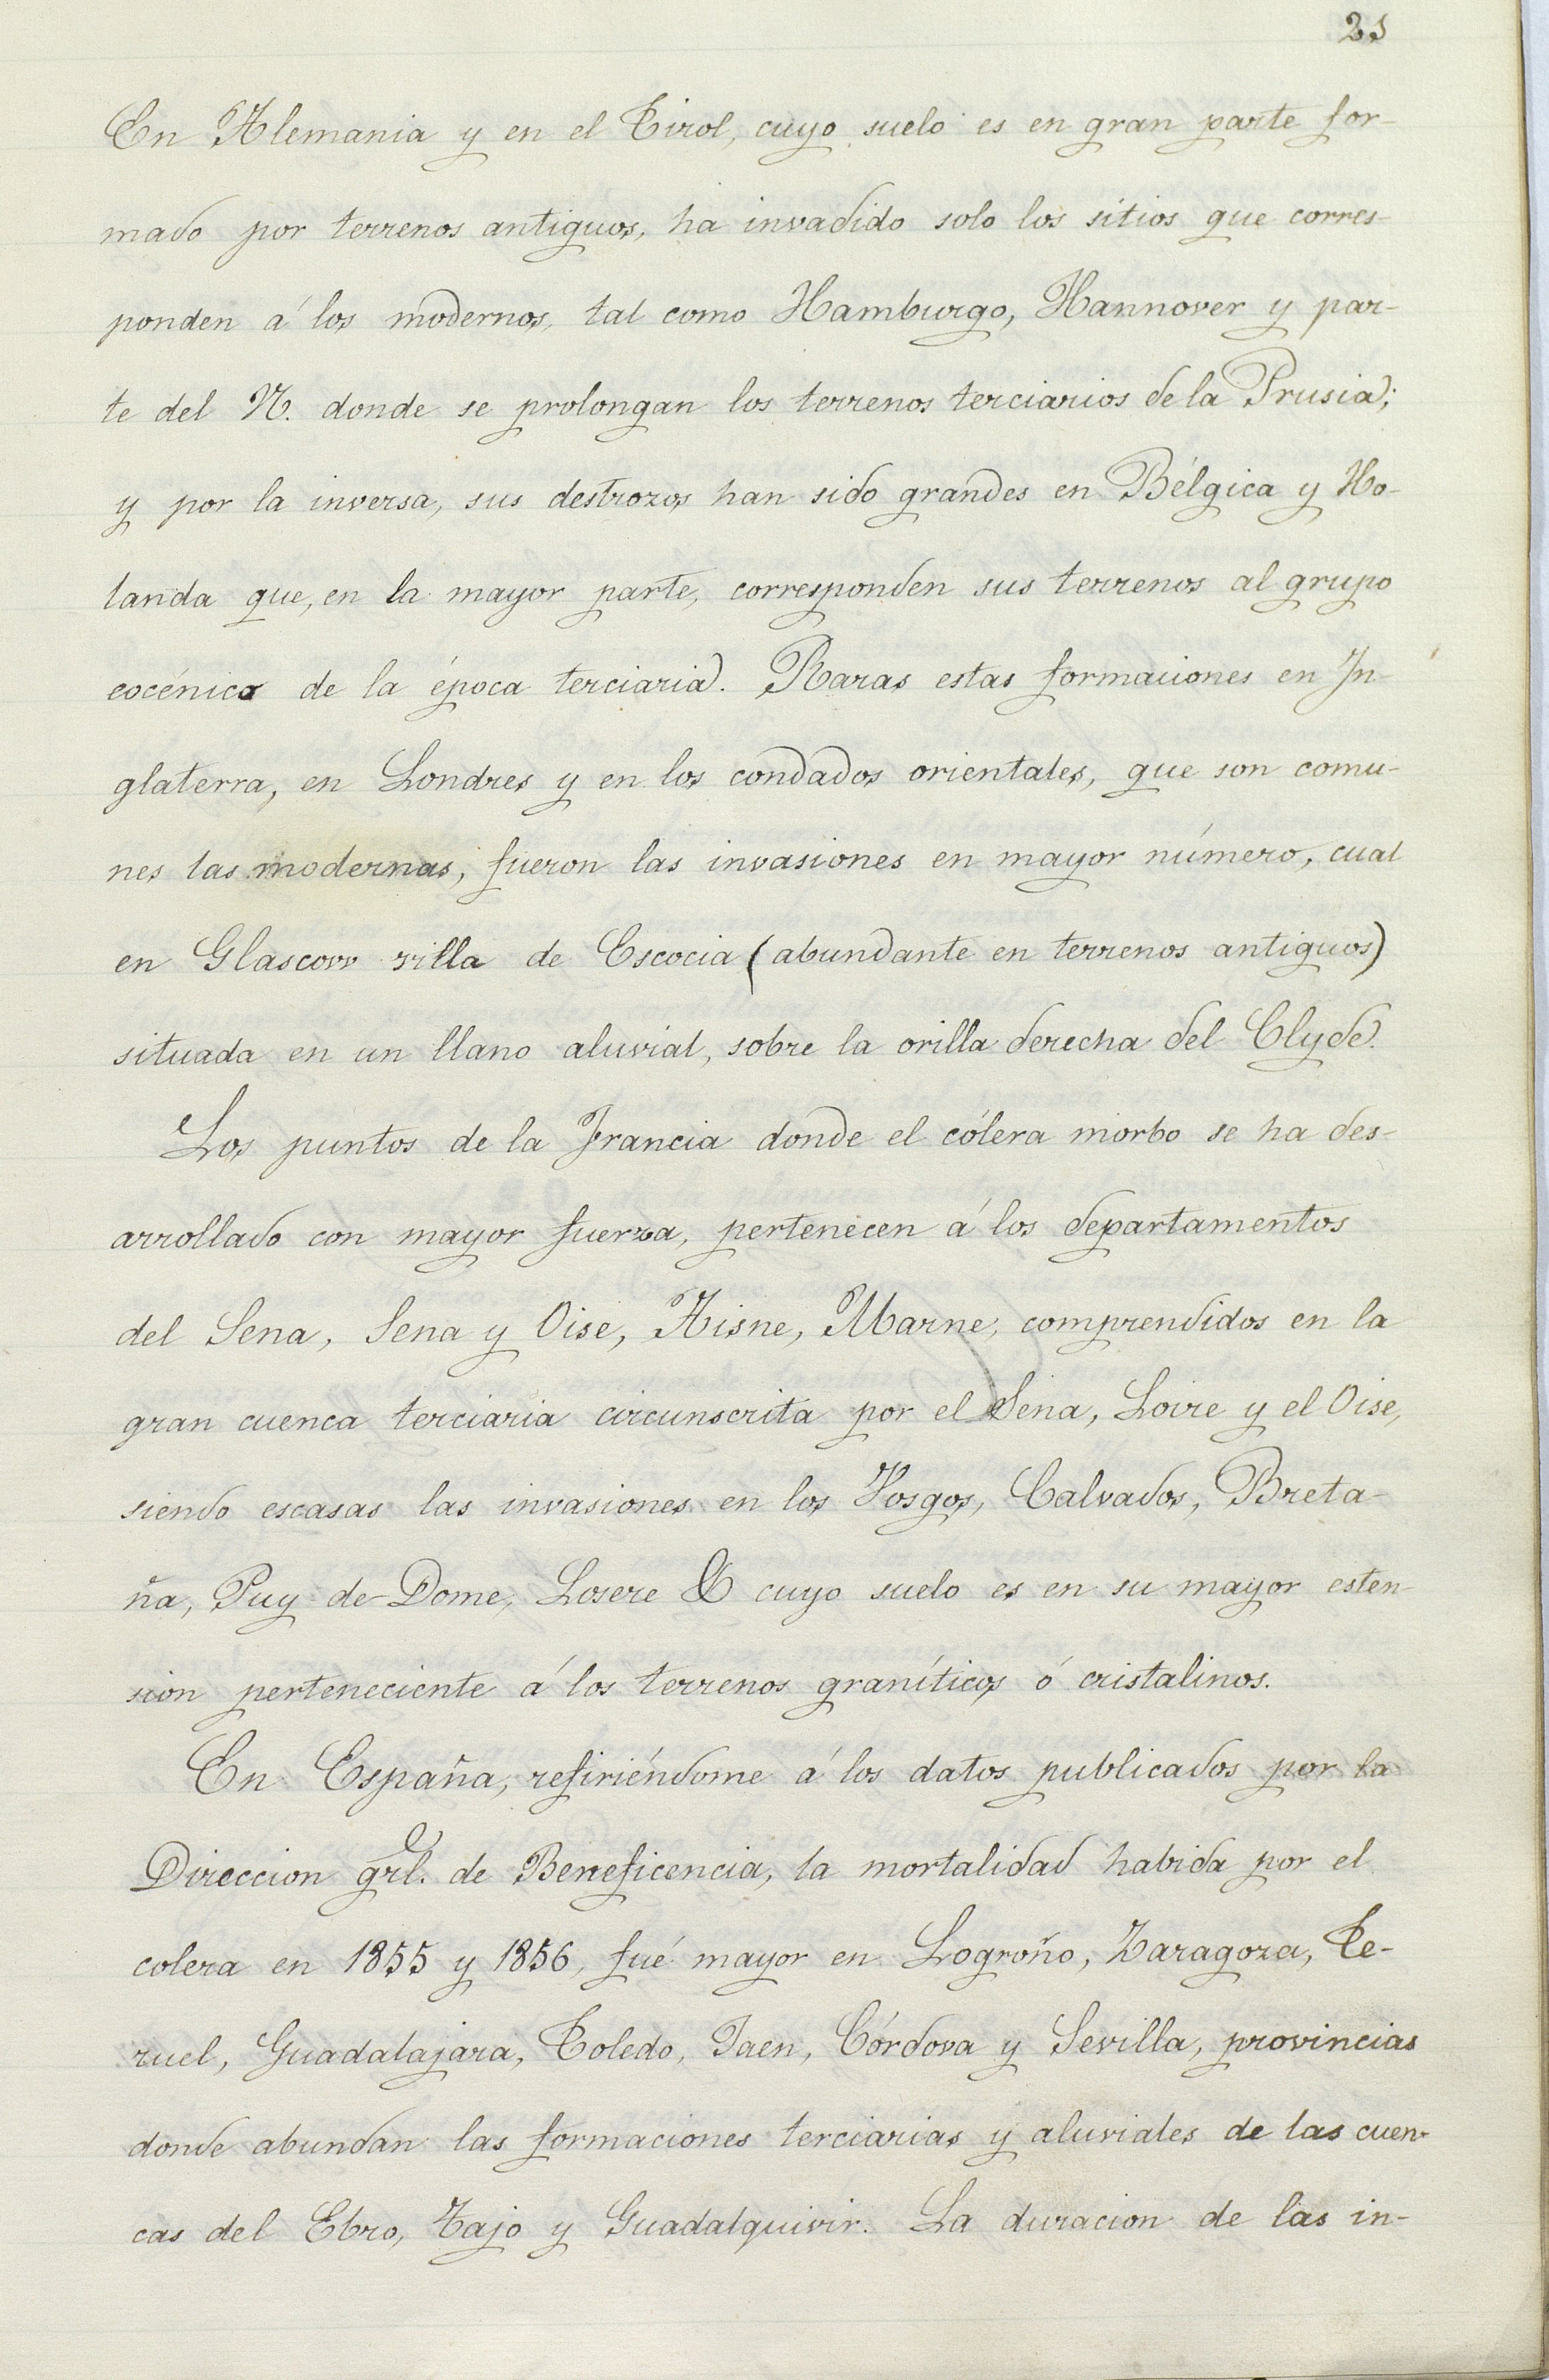 25
En Alemania y en el Tirol, cuyo suelo es en gran parte for-
mado por terrenos antiguos, ha invadido solo los sitios que corres-
ponden á los modernos, tal como Hamburgo, Hannover y par-
te del N. donde se prolongan los terrenos terciarios de la Prusia;
y por la inversa, sus destrozos han sido grandes en Bélgica y Ho-
landa que, en la mayor parte, corresponden sus terrenos al grupo
eocénico de la época terciaria. Raras estas formaciones en In-
glaterra, en Londres y en los condados orientales, que son comu-
nes las modernas, fueron las invasiones en mayor número, cual
en Glascow villa de Escocia (abundante en terrenos antiguos)
situada en un llano aluvial, sobre la orilla derecha del Clyde.
Los puntos de la Francia donde el cólera morbo se ha des-
arrollado con mayor fuerza, pertenecen á los departamentos
del Sena, Sena y Oise, Aisne, Marne, comprendidos en la
gran cuenca terciaria circunscrita por el Sena, Loire y el Oise,
siendo escasas las invasiones en los Vosgos, Calvados, Breta-
ña, Puy-de-Dome, Losere & cuyo suelo es en su mayor esten-
sion perteneciente á los terrenos graníticos ó cristalinos.
En España, refiriéndome á los datos publicados por la
Direccion grl. de Beneficencia, la mortalidad habida por el
colera en 1855 y 1856, fué mayor en Logroño, Zaragoza, Te-
ruel, Guadalajara, Toledo, Jaen, Córdova y Sevilla, provincias
donde abundan las formaciones terciarias y aluviales de las cuen-
cas del Ebro, Tajo y Guadalquivir. La duracion de las in-